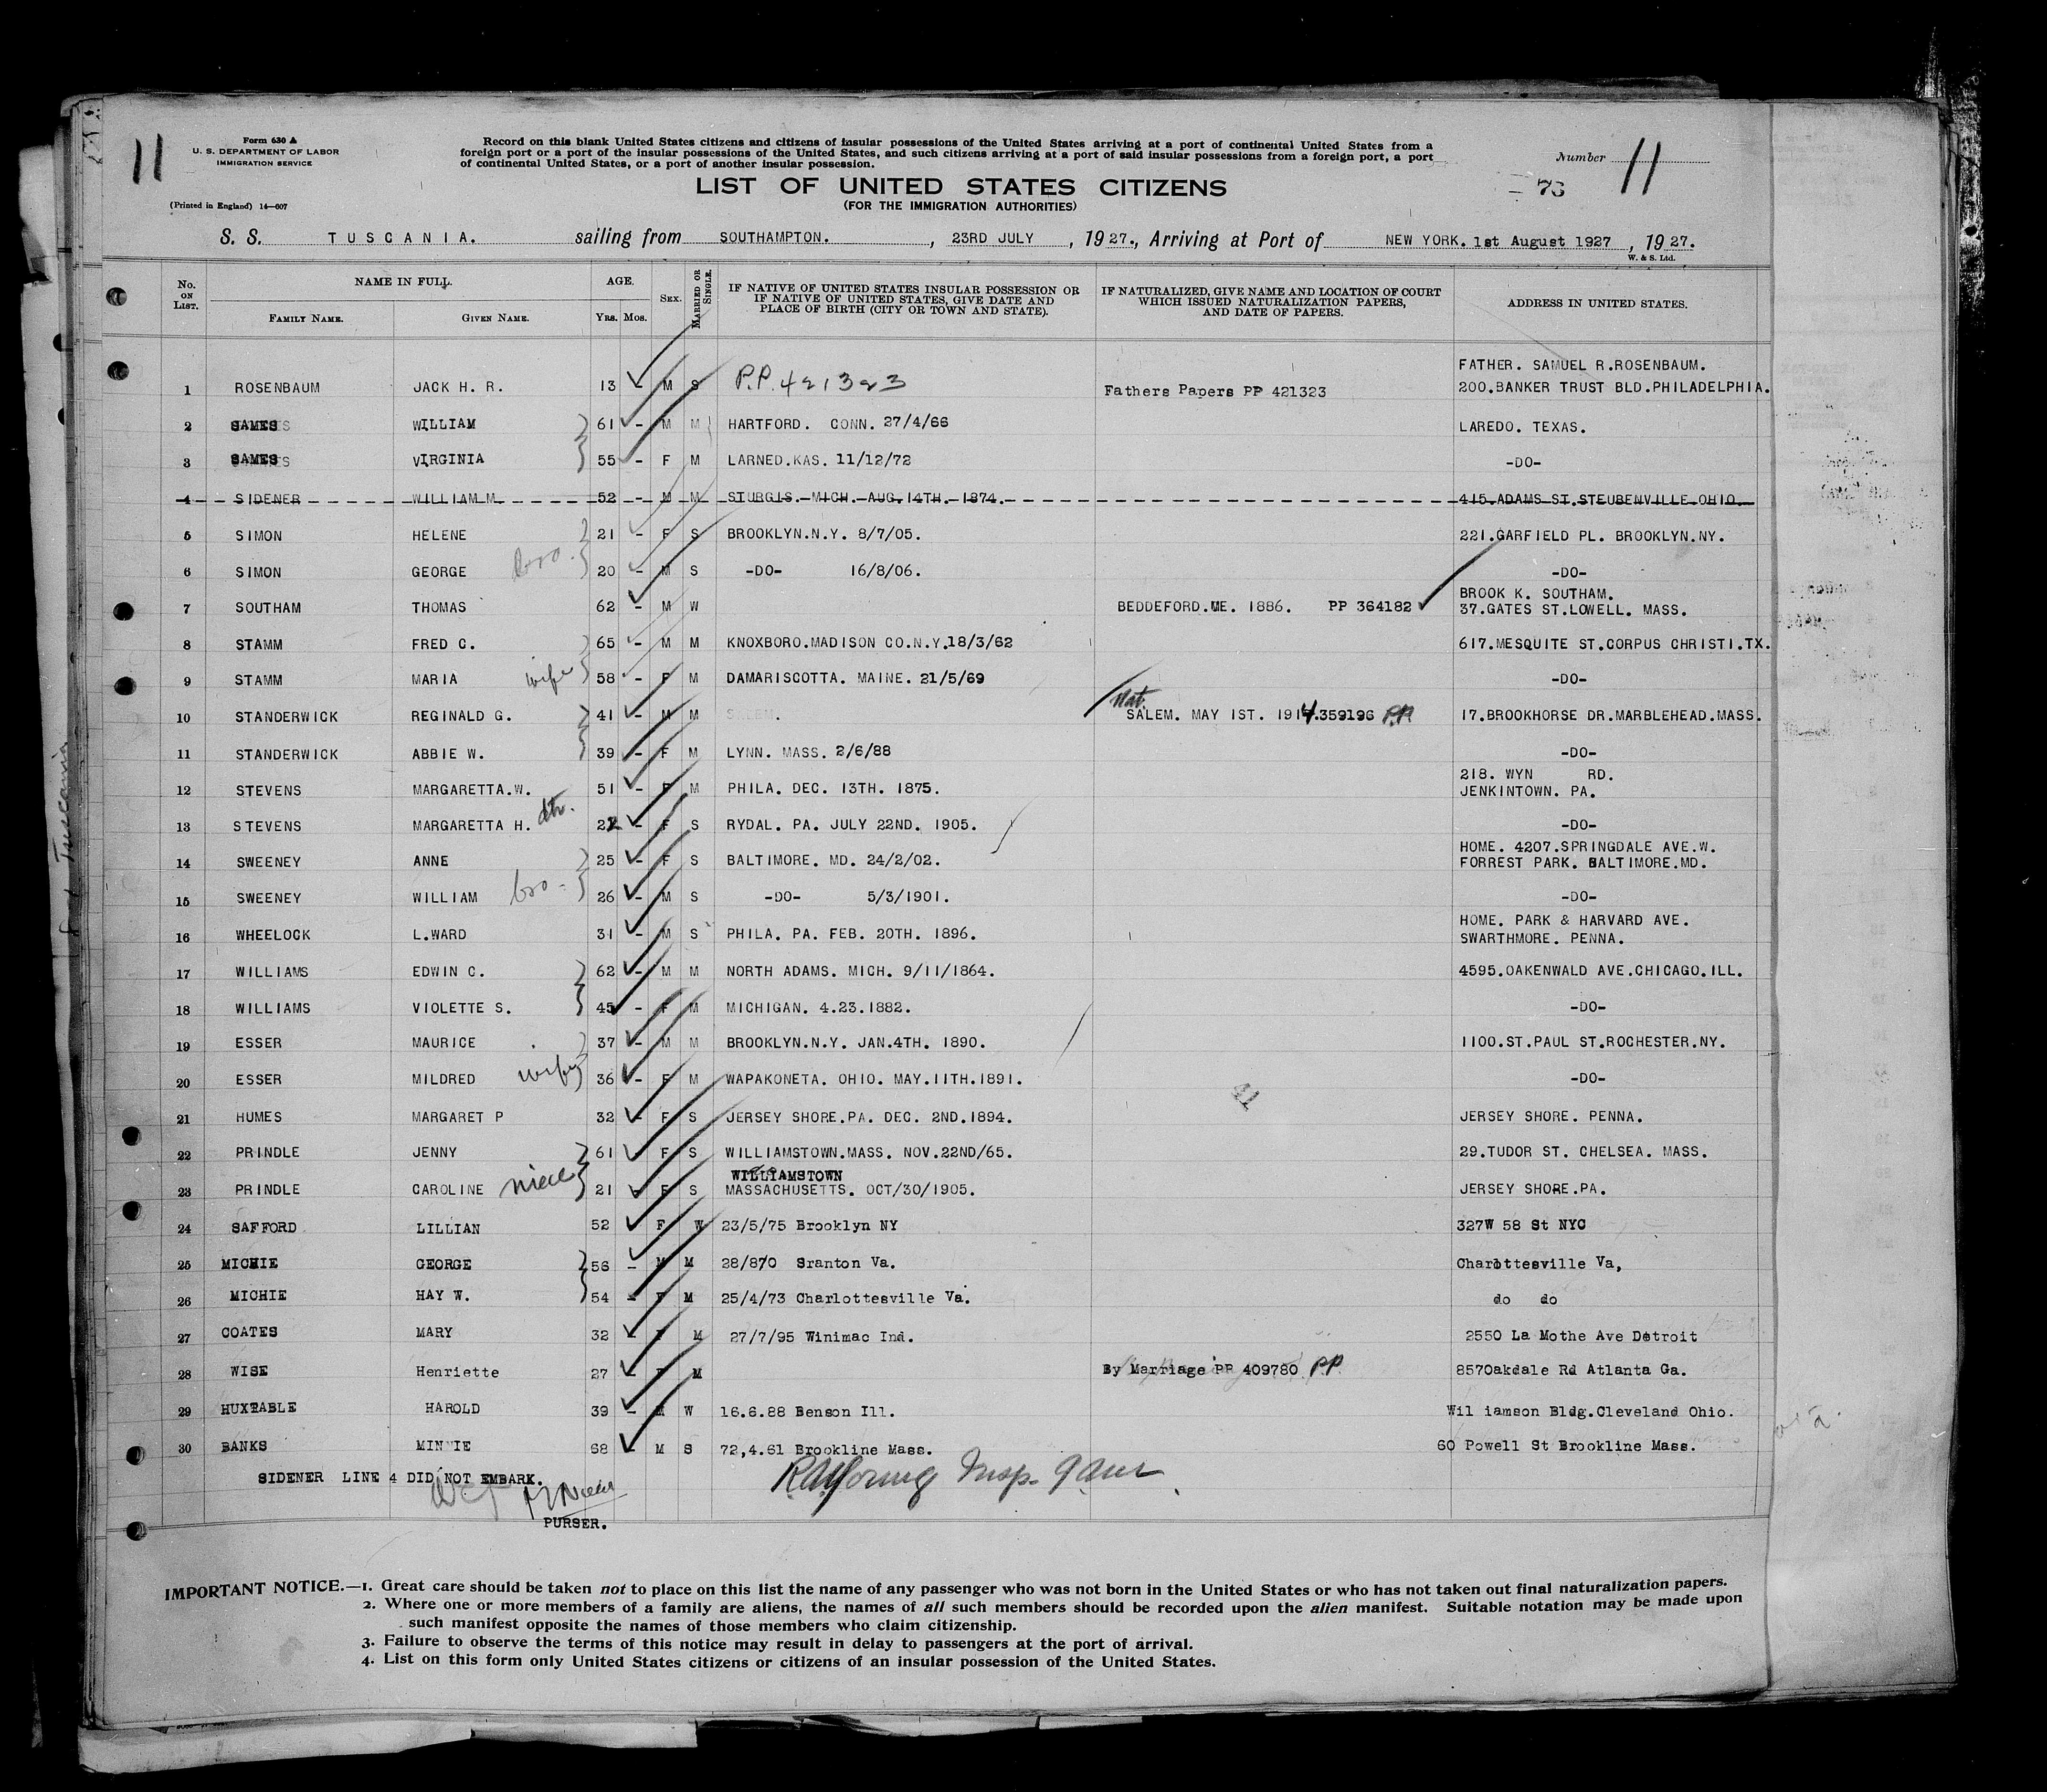 11
Form 630 A
U. S. DEPARTMENT OF LABOR
IMMIGRATION SERVICE
(Printed in England) 14—607
Record on this blank United States citizens and citizens of insular possessions of the United States arriving at a port of continental United States from a
foreign port or a port of the insular possessions of the United States, and such citizens arriving at a port of said insular possessions from a foreign port, a port
of continental United States, or a port of another insular possession.
Number 11
LIST OF UNITED STATES CITIZENS
(FOR THE IMMIGRATION AUTHORITIES)
S. S. TUSCANIA. sailing from SOUTHAMPTON. , 23RD JULY , 1927., Arriving at Port of NEW YORK. 1st August 1927 , 1927.
W. & S. Ltd.
No. ON LIST. NAME IN FULL. AGE. SEX. MARRIED OR SINGLE. IF NATIVE OF UNITED STATES INSULAR POSSESSION OR IF NATIVE OF UNITED STATES, GIVE DATE AND PLACE OF BIRTH (CITY OR TOWN AND STATE). IF NATURALIZED, GIVE NAME AND LOCATION OF COURT WHICH ISSUED NATURALIZATION PAPERS, AND DATE OF PAPERS. ADDRESS IN UNITED STATES.
FAMILY NAME. GIVEN NAME. YRS. MOS.
FATHER. SAMUEL R.ROSENBAUM.
1 ROSENBAUM JACK H. R. 13 - M S P.P. 421323 Fathers Papers PP 421323 200.BANKER TRUST BLD.PHILADELPHIA.
2 SAMES WILLIAM 61 - M M HARTFORD. CONN. 27/4/66 LAREDO. TEXAS.
3 SAMES VIRGINIA 55 - F M LARNED.KAS. 11/12/72 -DO-
4 SIDENER WILLIAM M. 52 - M M STURGIS. MICH. AUG.14TH. 1874. 415.ADAMS ST.STEUBENVILLE.OHIO.
5 SIMON HELENE 21 - F S BROOKLYN.N.Y. 8/7/05. 221.GARFIELD PL. BROOKLYN.NY.
6 SIMON GEORGE bro. 20 - M S -DO- 16/8/06. -DO-
BROOK K. SOUTHAM.
7 SOUTHAM THOMAS 62 - M W BEDDEFORD.ME. 1886. PP 364182 37.GATES ST.LOWELL. MASS.
8 STAMM FRED C. 65 - M M KNOXBORO.MADISON CO.N.Y.18/3/62 617.MESQUITE ST.CORPUS CHRISTI.TX.
9 STAMM MARIA wife 58 - F M DAMARISCOTTA. MAINE. 21/5/69 -DO-
Nat.
10 STANDERWICK REGINALD G. 41 - M M SALEM. SALEM. MAY 1ST. 1914.359196 P.P. 17.BROOKHORSE DR.MARBLEHEAD.MASS.
11 STANDERWICK ABBIE W. 39 - F M LYNN. MASS. 2/6/88 -DO-
218. WYN RD.
12 STEVENS MARGARETTA.W. 51 - F M PHILA. DEC. 13TH. 1875. JENKINTOWN. PA.
13 STEVENS MARGARETTA H. dtr. 22 - F S RYDAL. PA. JULY 22ND. 1905. -DO-
HOME. 4207.SPRINGDALE AVE.W.
14 SWEENEY ANNE 25 - F S BALTIMORE. MD. 24/2/02. FORREST PARK. BALTIMORE.MD.
15 SWEENEY WILLIAM bro- 26 - M S -DO- 5/3/1901. -DO-
HOME. PARK & HARVARD AVE.
16 WHEELOCK L.WARD 31 - M S PHILA. PA. FEB. 20TH. 1896. SWARTHMORE. PENNA.
17 WILLIAMS EDWIN C. 62 - M M NORTH ADAMS. MICH. 9/11/1864. 4595.OAKENWALD AVE.CHICAGO.ILL.
18 WILLIAMS VIOLETTE S. 45 - F M MICHIGAN. 4.23.1882. -DO-
19 ESSER MAURICE 37 - M M BROOKLYN.N.Y. JAN.4TH. 1890. 1100.ST.PAUL ST.ROCHESTER.NY.
20 ESSER MILDRED wife 36 - F M WAPAKONETA. OHIO. MAY.11TH.1891. -DO-
41
21 HUMES MARGARET P 32 - F S JERSEY SHORE.PA. DEC. 2ND.1894. JERSEY SHORE. PENNA.
22 PRINDLE JENNY 61 - F S WILLIAMSTOWN.MASS. NOV.22ND/65. 29.TUDOR ST. CHELSEA. MASS.
WILLIAMSTOWN
23 PRINDLE CAROLINE niece 21 - F S MASSACHUSETTS. OCT/30/1905. JERSEY SHORE.PA.
24 SAFFORD LILLIAN 52 F W 23/5/75 Brooklyn NY 327W 58 St NYC
25 MICHIE GEORGE 56 - M M 28/870 Sranton Va. Charlottesville Va,
26 MICHIE HAY W. 54 - F M 25/4/73 Charlottesville Va. do do
27 COATES MARY 32 - F M 27/7/95 Winimac Ind. 2550 La Mothe Ave Detroit
28 WISE Henriette 27 - F M By Marriage PP 409780 P.P. 857Oakdale Rd Atlanta Ga.
29 HUXTABLE HAROLD 39 - M W 16.6.88 Benson Ill. Wil iamson Bldg.Cleveland Ohio.
30 BANKS MINNIE 68 - M S 72,4.61 Brookline Mass. 60 Powell St Brookline Mass.
SIDENER LINE 4 DID NOT EMBARK.
PURSER.
IMPORTANT NOTICE.—1. Great care should be taken not to place on this list the name of any passenger who was not born in the United States or who has not taken out final naturalization papers.
2. Where one or more members of a family are aliens, the names of all such members should be recorded upon the alien manifest. Suitable notation may be made upon
such manifest opposite the names of those members who claim citizenship.
3. Failure to observe the terms of this notice may result in delay to passengers at the port of arrival.
4. List on this form only United States citizens or citizens of an insular possession of the United States.